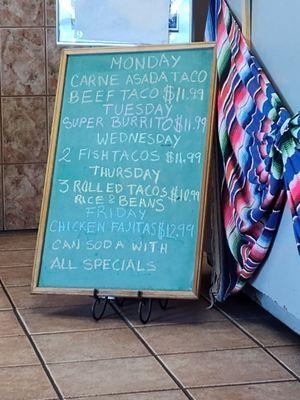 MONDAY
CARNE ASADA TACO
BEEF TACO $11.99
TUESDAY
SUPER BURRITO $11.99
WEDNESDAY
2 FISH TACOS $11.99
THURSDAY
3 ROLLED TACOS $10.99
RICE & BEANS
FRIDAY
CHICKEN FAJITAS $12.99
CAN SODA WITH
ALL SPECIALS